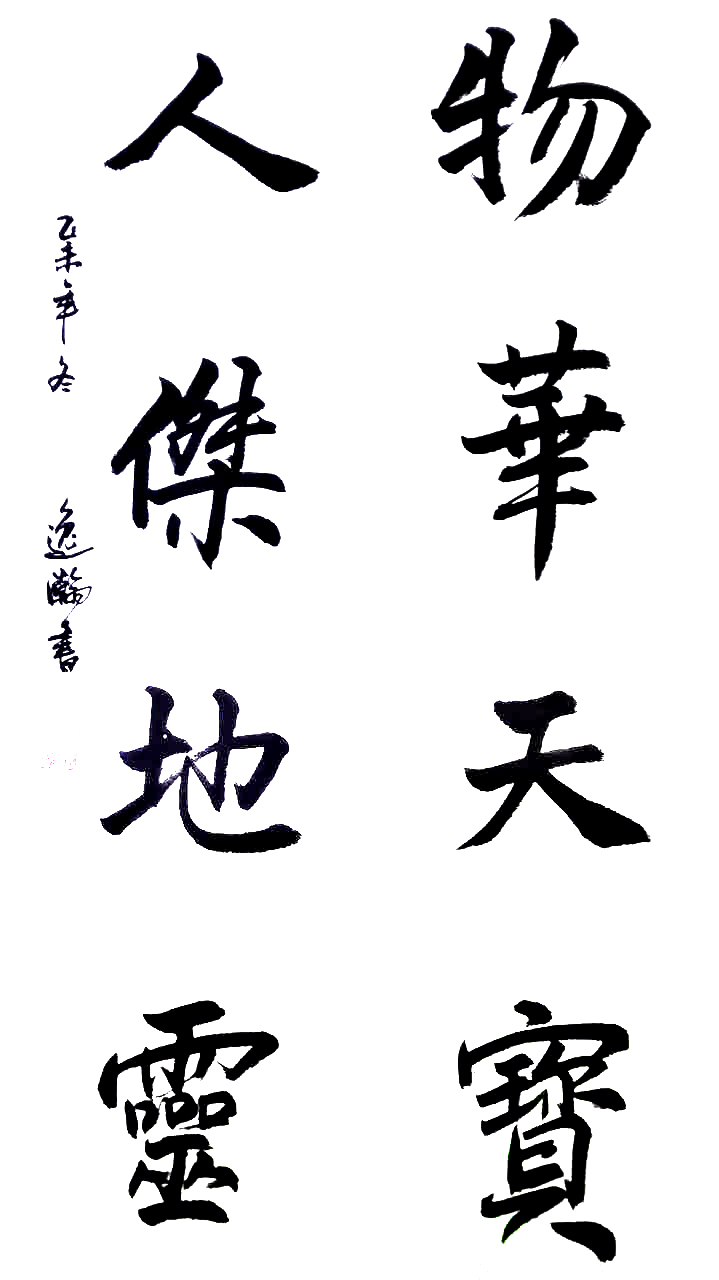 物華天寶
人傑地靈
乙未年冬
逸瀚書